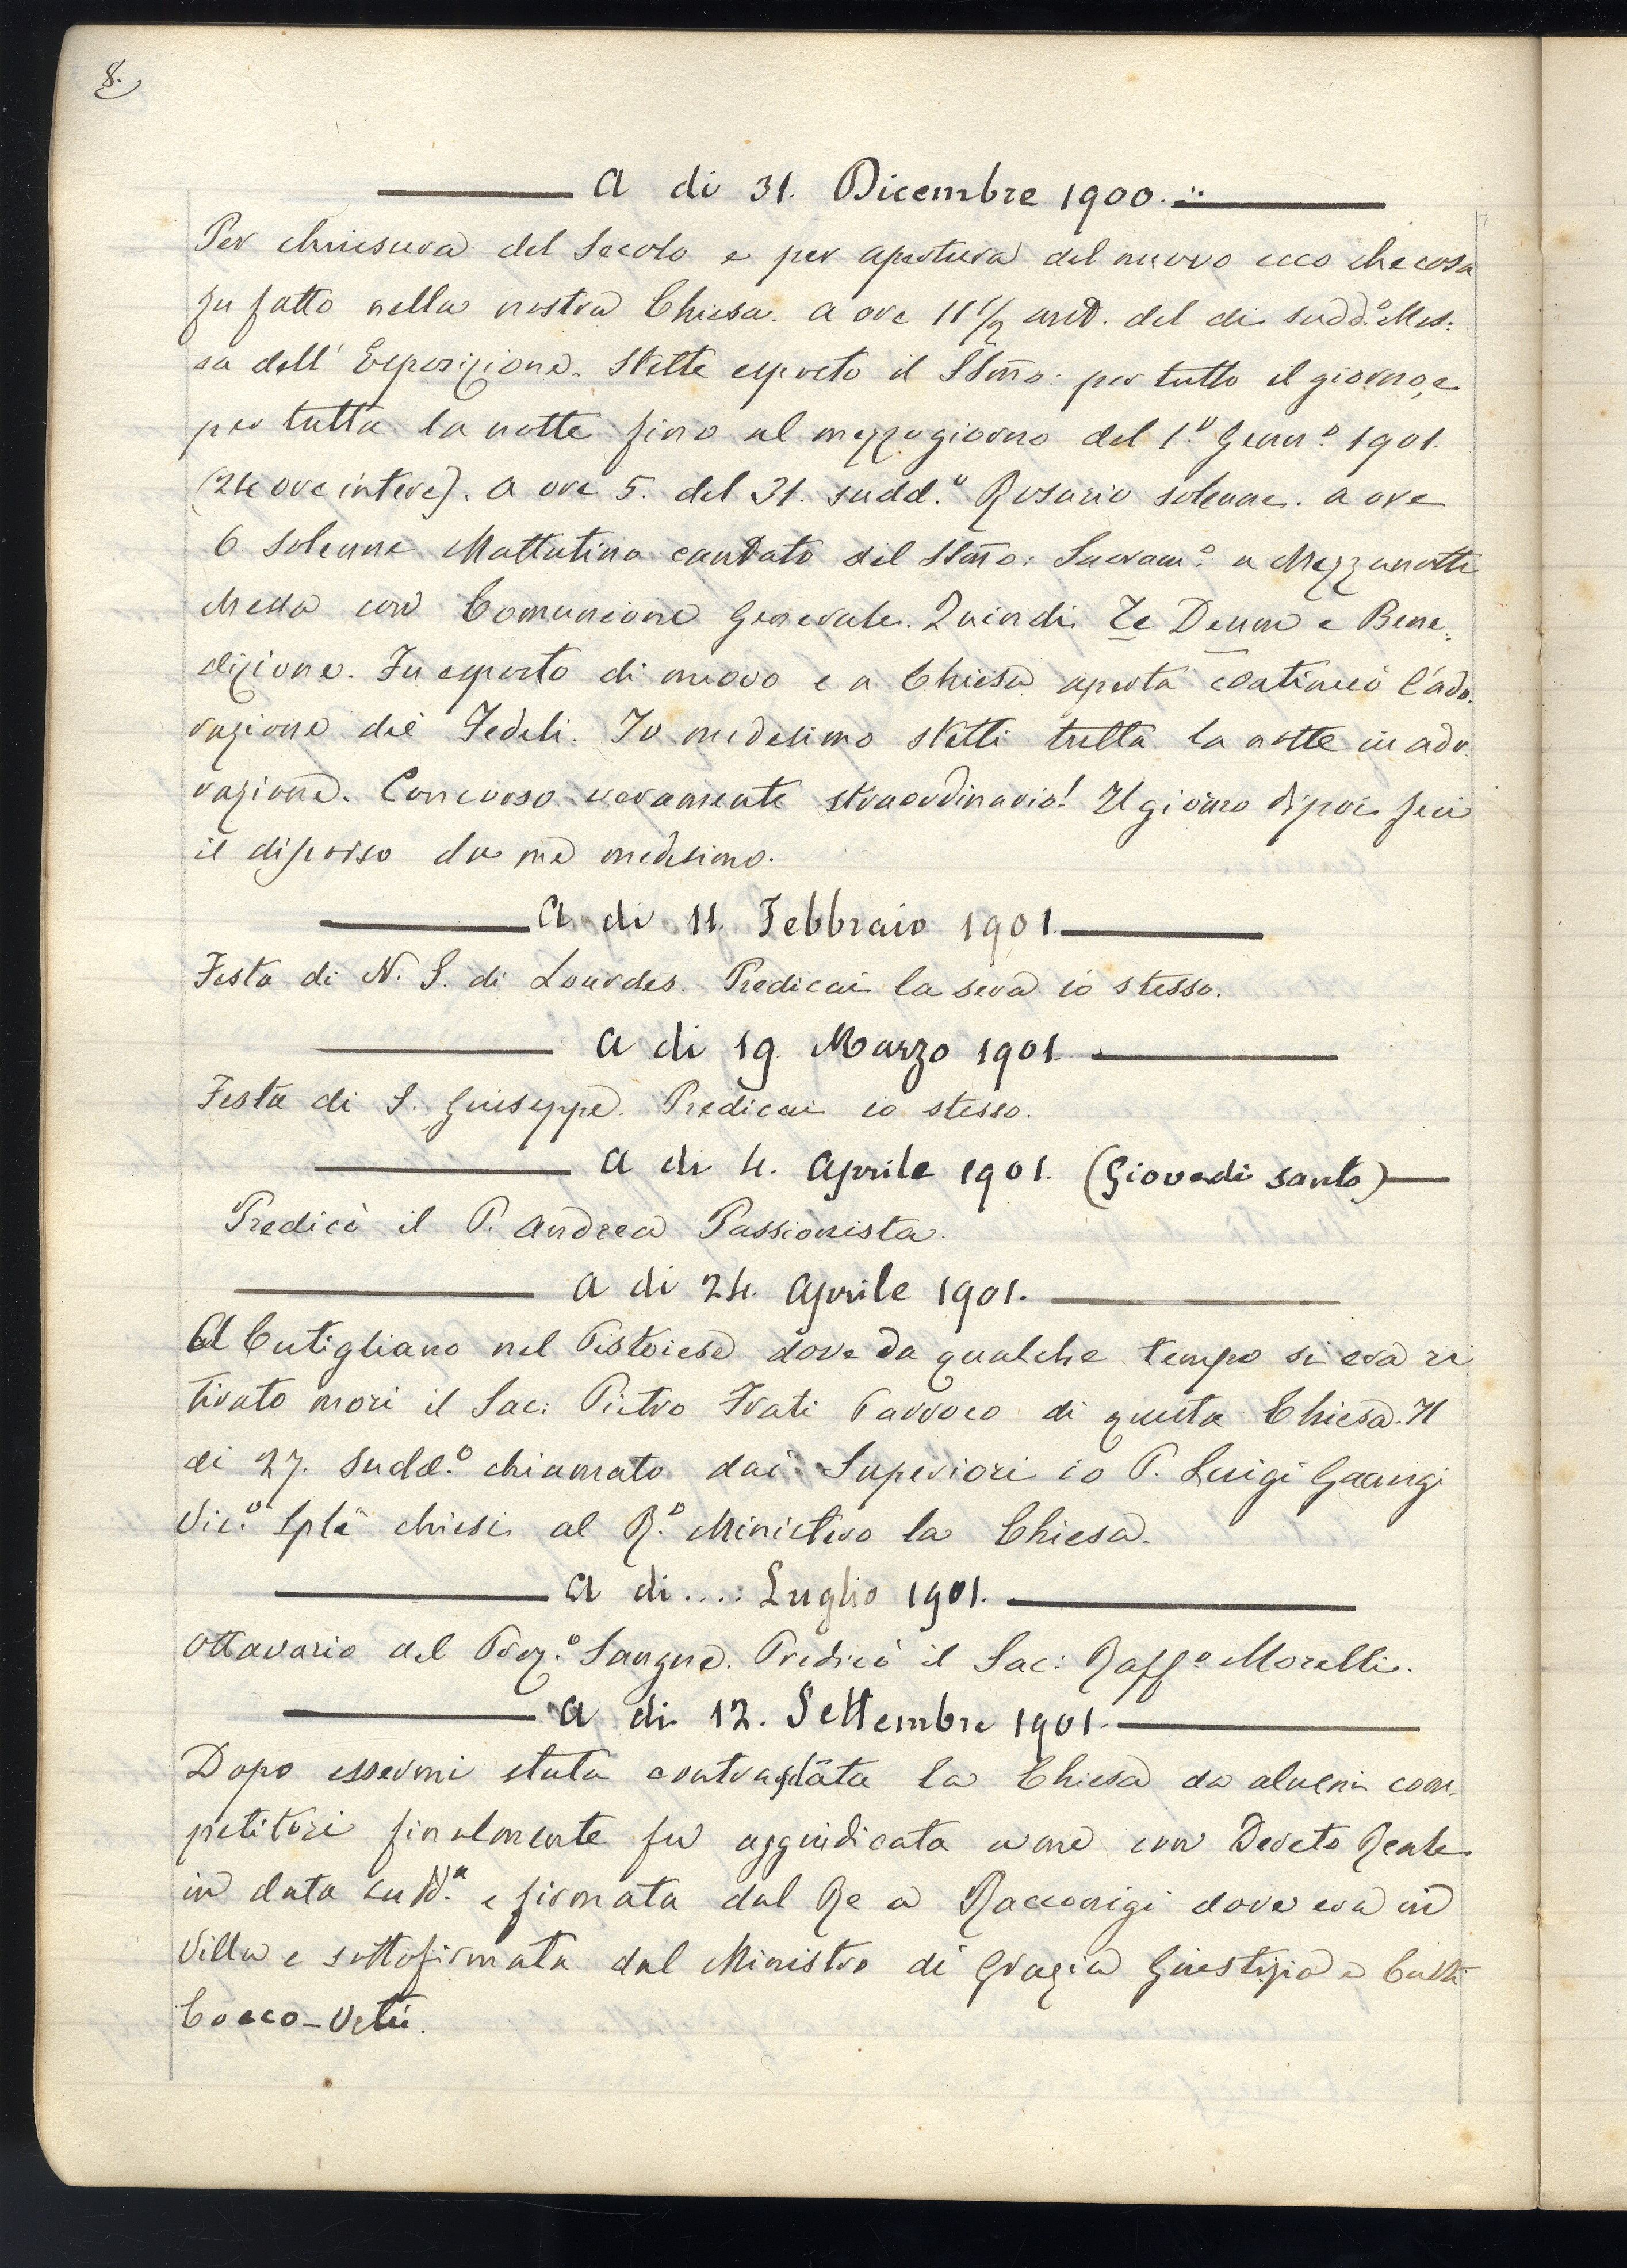 8.
A di 31. Dicembre 1900.
Per chiusura del Secolo e per apertura del nuovo ecco checosa
fu fatto nella nostra Chiesa. A ore 11 1/2 antð. del di sudd.º Mes:
sa dell' Esposizione. Stette esposto il SSmo: per tutto il giorno, e
per tutta la notte fino al mezzogiorno del 1.º Genn.º 1901.
(24 ore intere). A ore 5. del 31. sudd.º Rosario solenne. A ore
6. Solenne Mattutino cantato del SSmo: Sacram.º a Mezzanotte
Messa con Comunione Generale. Quindi Te Deum e Bene:
dizione. Fu esposto di nuovo e a Chiesa aperta continuò l'ado.
razione dei Fedeli. Io medesimo stetti tutta la notte in ado.
razione. Concorso veramente straordinario! Il giorno dipoi feci
il discorso da me medesimo.
A di 11. Febbraio 1901.
Festa di N. S. di Lourdes. Predicai la sera io stesso.
A di 19. Marzo 1901.
Festa di S. Giuseppe. Predicai io stesso.
A di 4. Aprile 1901. (Giovedi santo)
Predicò il P. Andrea Passionista.
A di 24. Aprile 1901.
A Cutigliano nel Pistoiese dove da qualche tempo si era ri
tirato mori il Sac: Pietro Frati Parroco di questa Chiesa. Il
di 27. sudd.º chiamato dai Superiori io P. Luigi
Vic.º Sple chiesi al R.º Ministero la Chiesa.
A di....: Luglio 1901.
Ottavario del Prez.º Sangue. Predicò il Sac: Raff.º Morelli.
A di 12. Settembre 1901.
Dopo essermi stata contrastata la Chiesa da alcuni com.
petitori finalmente fu aggiudicata a me con Decreto Reale
in data sudd.ª e firmata dal Re a Racconigi dove era in
Villa e sottofirmata dal Ministro di Grazia Giustizia e Culti
Cocco-Ortù.